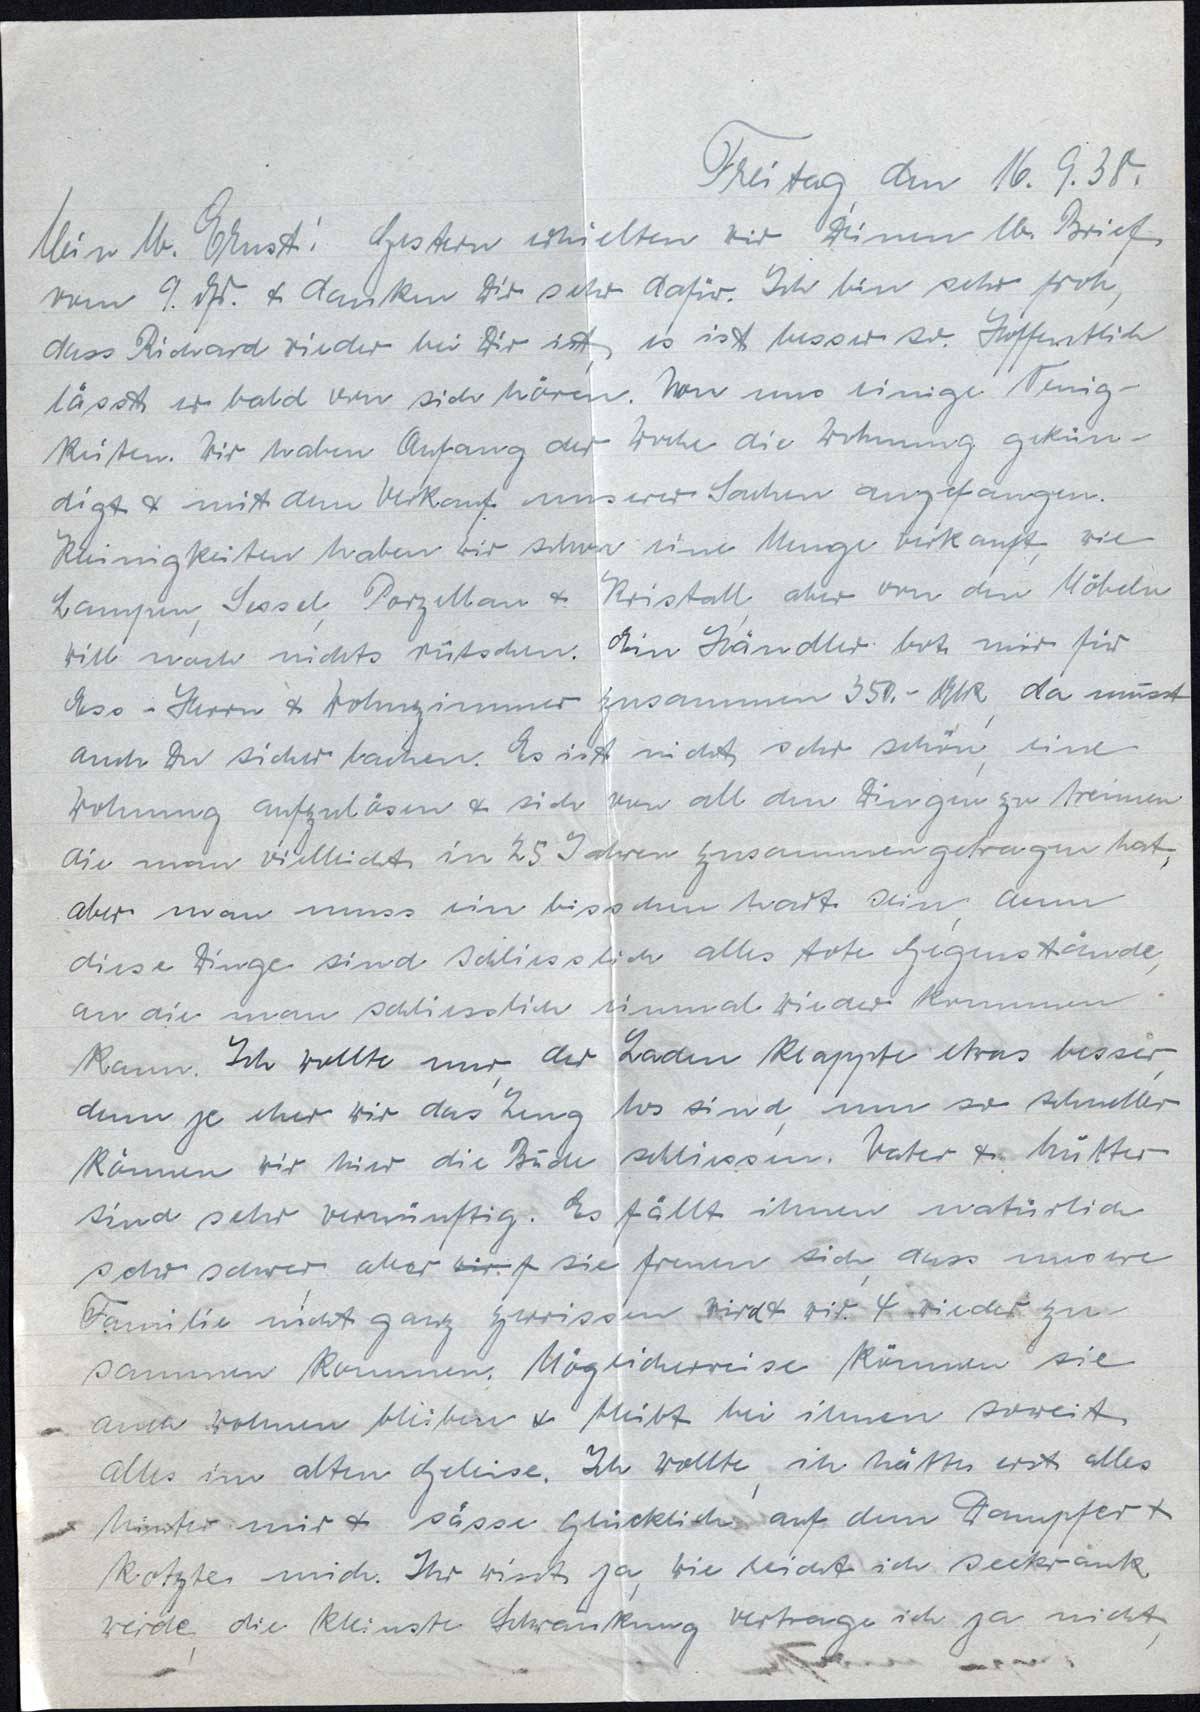 Freitag, den 16. 9. 38.
Mein lb. Ernst! Gestern erhielten wir Deinen lb. Brief
vom 9. ds. & danken Dir sehr dafür. Ich bin sehr froh,
dass Richard wieder bei Dir ist, es ist besser so. Hoffentlich
lässt er bald von sich hören. Von uns einige Neuig-
keiten. Wir haben Anfang der Woche die Wohnung gekün-
digt & mit dem Verkauf unserer Sachen angefangen.
Kleinigkeiten haben wir schon eine Menge verkauft, wie
Lampen, Sessel, Porzellan & Kristall, aber von den Möbeln
will noch nichts rutschen. Ein Händler bot mir für
Ess- Herrn & Wohnzimmer zusammen 350.- RM, da musst
auch Du sicher lachen. Es ist nicht sehr schön, eine
Wohnung aufzulösen & sich von all den Dingen zu trennen
die man vielleicht in 25 Jahren zusammengetragen hat,
aber man muss ein bisschen hart sein, denn
diese Dinge sind schliesslich alles tote Gegenstände,
an die man schliesslich einmal wieder kommen
kann. Ich wollte nur, der Laden klappte etwas besser,
denn je eher wir das Zeug los sind, um so schneller
können wir hier die Bude schliessen. Vater & Mutter
sind sehr vernünftig. Es fällt ihnen natürlich
sehr schwer, aber sie freuen sich, dass unsere
Familie nicht ganz zerrissen wird & wir 4 wieder zu-
sammen kommen. Möglicherweise können sie
auch wohnen bleiben & bleibt bei ihnen soweit
alles im alten Geleise. Ich wollte, ich hätte erst alles
hinter mir & sässe glücklich auf dem Dampfer &
kotzte mich. Ihr wisst ja, wie leicht ich seekrank
werde, die kleinste Schwankung vertrage ich ja nicht,